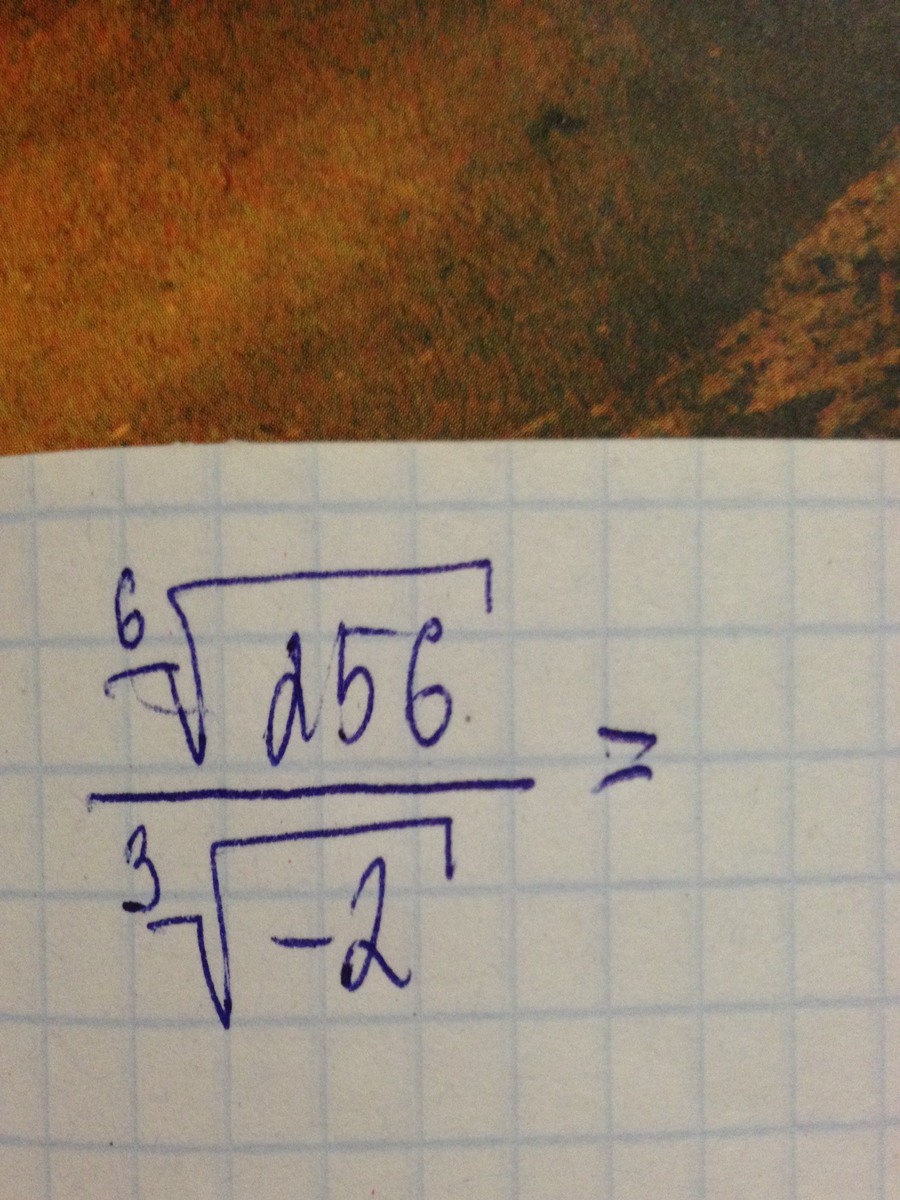 ⁶√256
———— =
³√-2